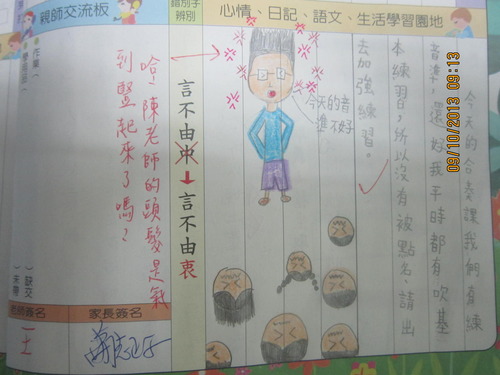 親師交流板
錯別字
辨別
心情、日記、語文、生活學習園地
今天的合奏讓我們有練
音準,還好我平時都有吹基
本練習,所以沒有被點名、請出
去加強練習。
今天的音
準不好
言不由沖
言不由衷
哈!陳老師的頭髮是氣
到豎起來了嗎?
缺交
未帶
老師簽名
家長簽名
09/10/2013 09:13